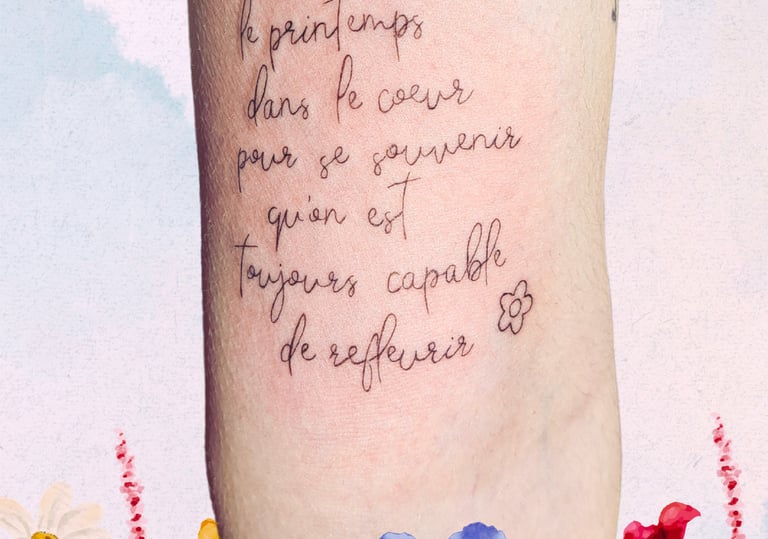 le printemps
dans le coeur
pour se souvenir
qu'on est
toujours capable
de refleurir